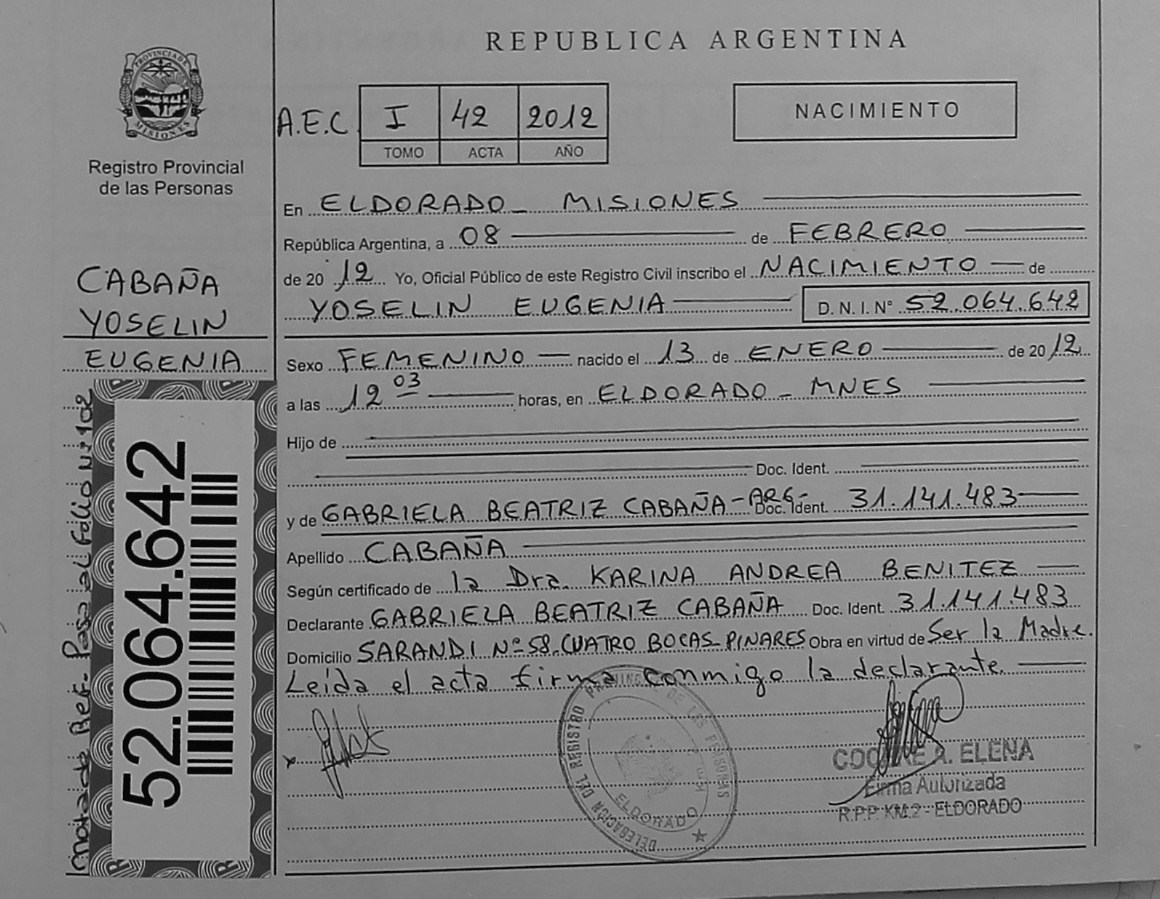 REPUBLICA ARGENTINA
PROVINCIA DE MISIONES
Registro Provincial
de las Personas
A.E.C. I 42 2012
TOMO ACTA AÑO
NACIMIENTO
En ELDORADO - MISIONES
República Argentina, a 08 de FEBRERO
de 2012 Yo, Oficial Público de este Registro Civil inscribo el NACIMIENTO de
YOSELIN EUGENIA D.N.I. N° 52.064.642
Sexo FEMENINO nacido el 13 de ENERO de 2012
a las 12 03 horas, en ELDORADO - MNES
Hijo de
Doc. Ident.
y de GABRIELA BEATRIZ CABAÑA - ARG - Doc. Ident. 31.141.483
Apellido CABAÑA
Según certificado de la Dra. KARINA ANDREA BENITEZ
Declarante GABRIELA BEATRIZ CABAÑA Doc. Ident. 31.141.483
Domicilio SARANDI N° 58. CUATRO BOCAS-PINARES Obra en virtud de Ser la Madre.
Leída el acta firma conmigo la declarante
CABAÑA
YOSELIN
EUGENIA
52.064.642
Nota de Ref. Pasa al Folio N: 102
DELEGACION DEL REGISTRO PROVINCIAL DE LAS PERSONAS
ELDORADO
A. ELENA
Firma Autorizada
R.P.P. KM.2 - ELDORADO